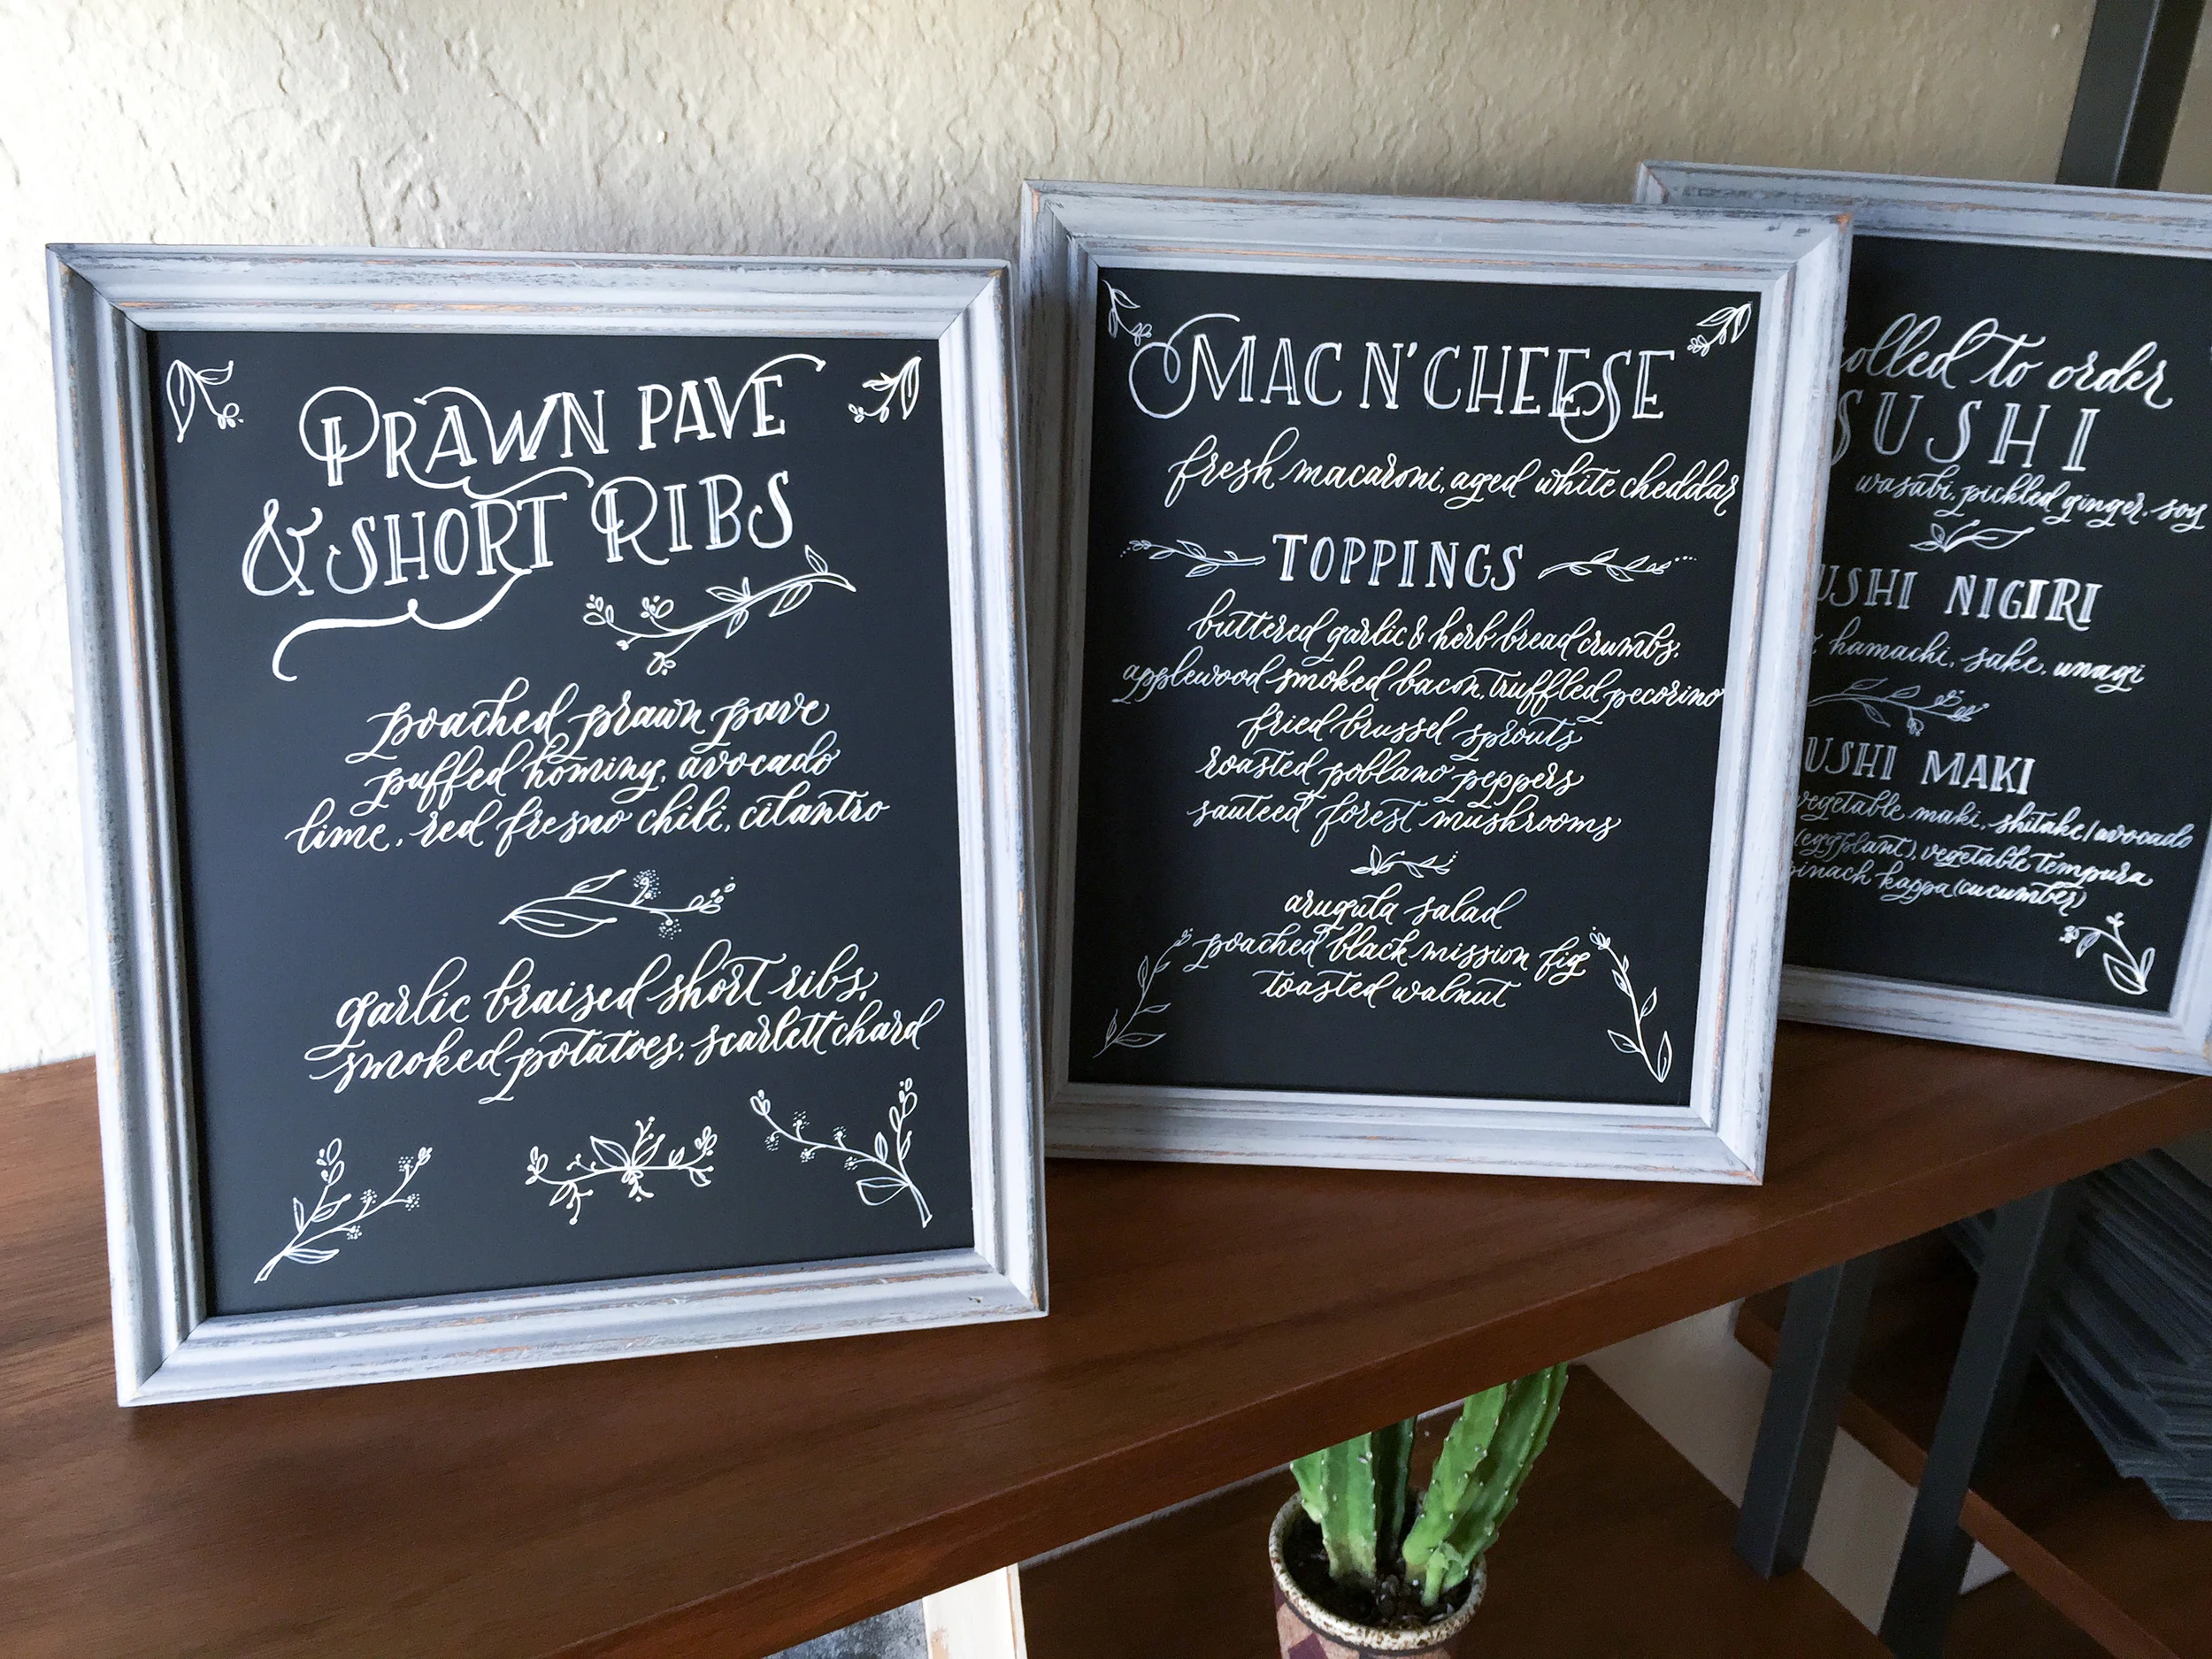 PRAWN PAVE
& SHORT RIBS
poached prawn pave
puffed hominy, avocado
lime, red fresno chili, cilantro
garlic braised short ribs,
smoked potatoes, scarlett chard
MAC N' CHEESE
fresh macaroni, aged white cheddar
TOPPINGS
buttered garlic & herb bread crumbs,
applewood smoked bacon, truffled pecorino
fried brussel sprouts
roasted poblano peppers
sauteed forest mushrooms
arugula salad
poached black mission fig
toasted walnut
olled to order
SUSHI
wasabi, pickled ginger, soy
USHI NIGIRI
hamachi, sake, unagi
USHI MAKI
vegetable maki, shitake/avocado
(eggplant), vegetable tempura
pinach kappa (cucumber)